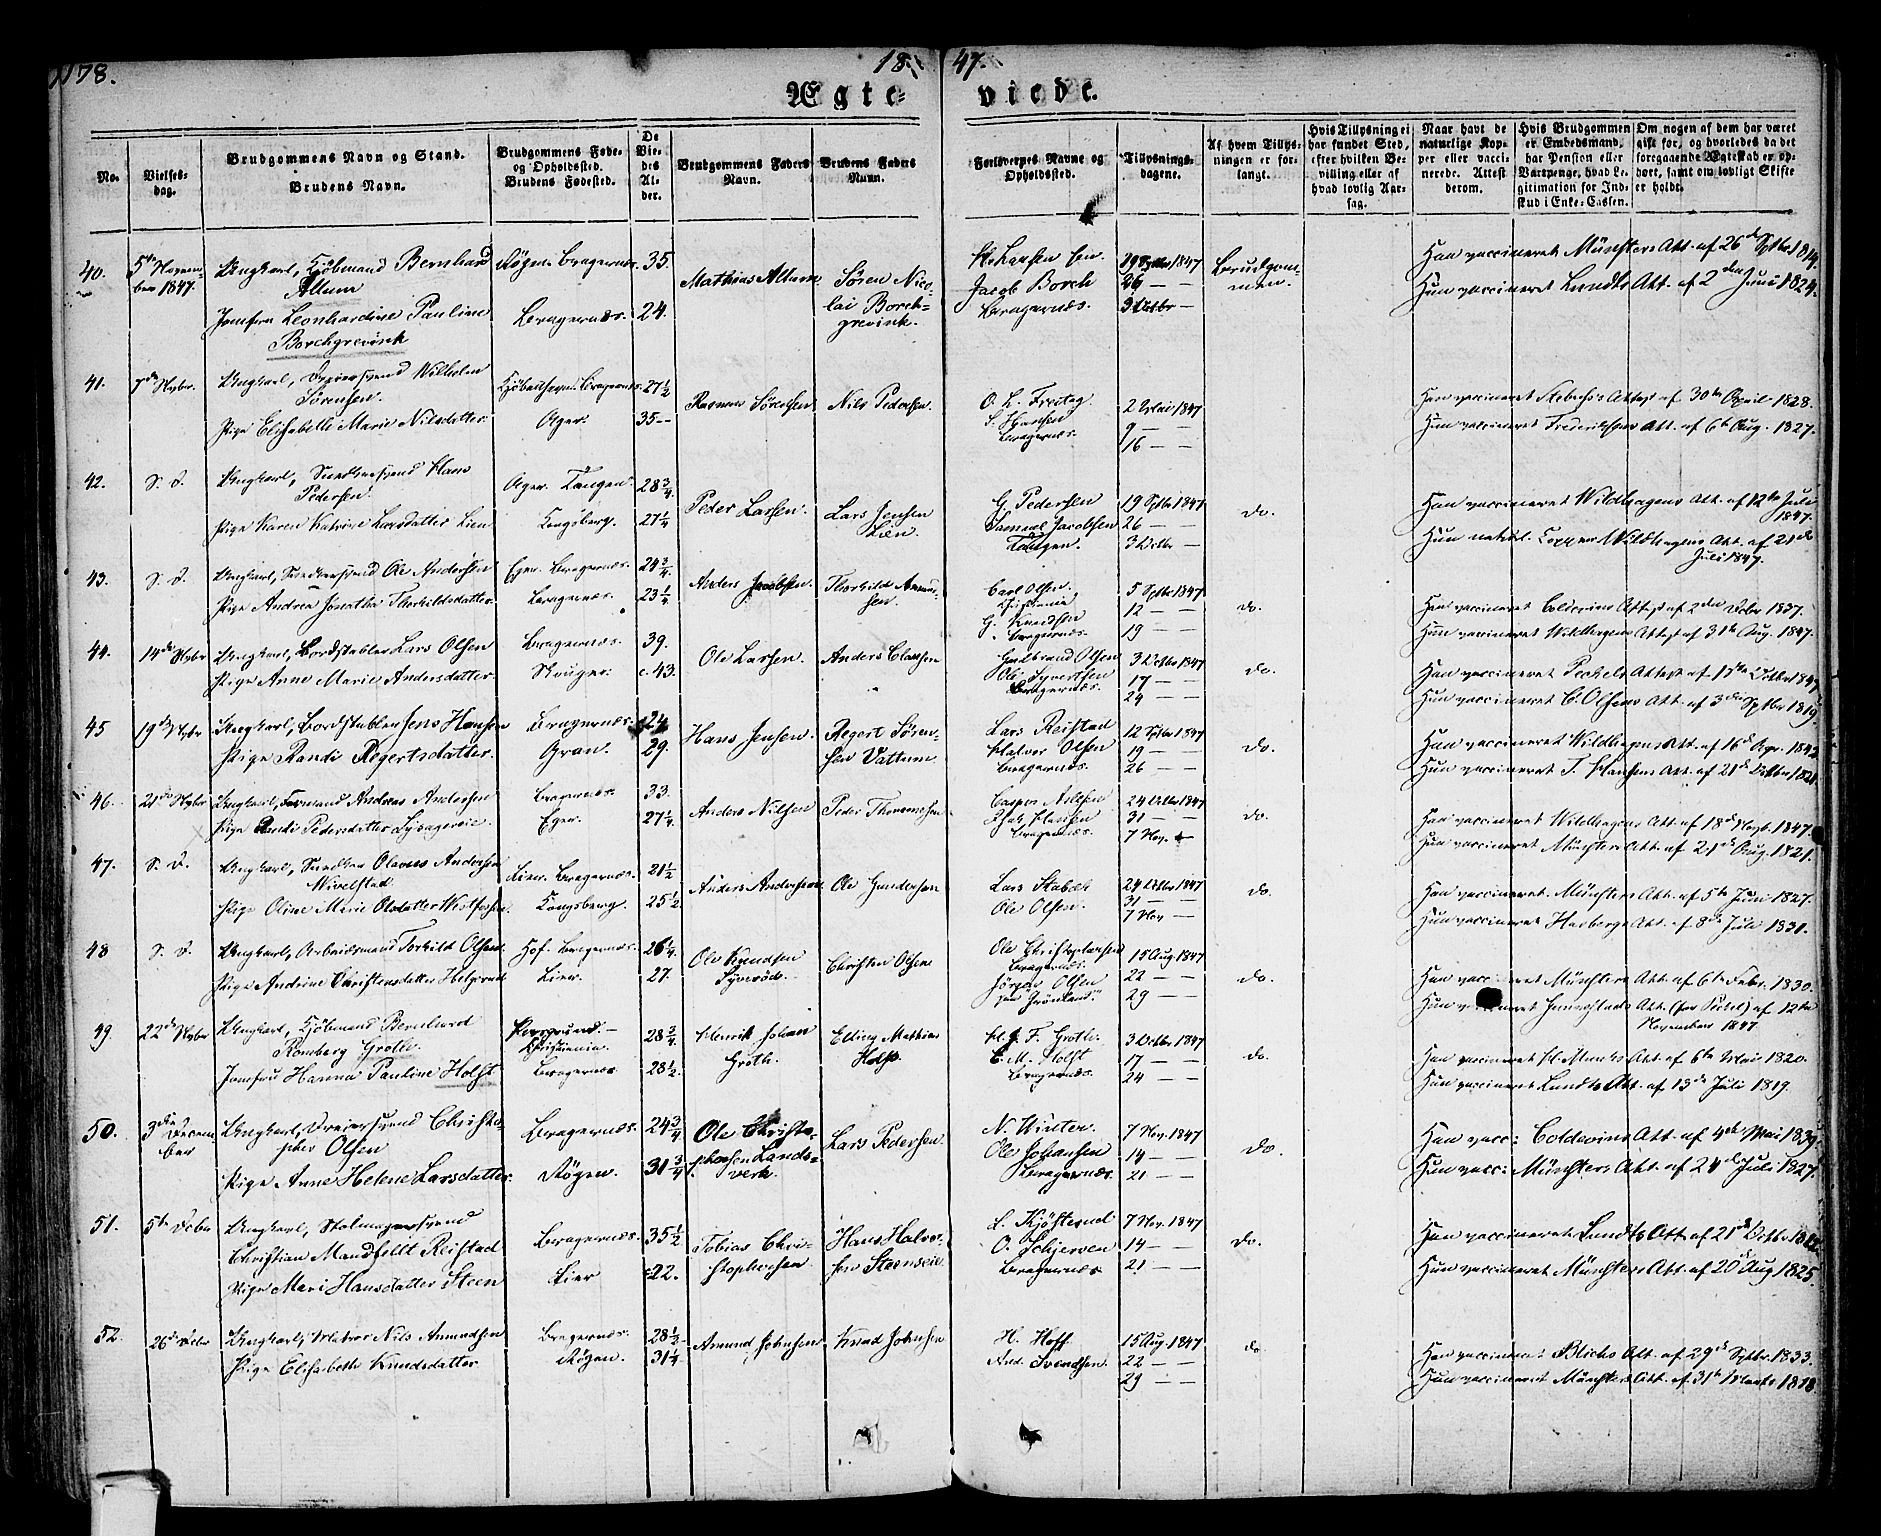 178.
1847.
Ægteviede.
No.
Vielses-
dag.
Brudgommens Navn og Stand.
Brudens Navn.
Brudgommens Føde-
og Opholdssted.
Brudens Fødested.
De
Vie-
des
Al-
der.
Brudgommens Faders
Navn.
Brudens Faders
Navn.
Forloverpes Navne og
Opholdssted.
Tillysnings-
dagene.
Af hvem Tillys-
ningen er for-
langt.
Hvis Tillysning ei
har fundet Sted,
efter hvilken Be-
villing eller af
hvad lovlig Aar-
sag.
Naar havt de
naturlige Kop-
per eller vacci-
nerede. Attest
derom.
Hvis Brudgommen
er Embedsmand,
har Pension eller
Vartpenge, hvad Le-
gitimation for Ind-
skud i Enke-Cassen.
Om nogen af dem har været
gift før, og hvorledes da det
foregaaende Ægteskab er op-
hørt, samt om lovligt Skifte
er holdt.
40.
5te Novem-
ber 1847.
Ungkarl, Kjøbmand Bernhard
Allum
Jomfru Leonhardine Pauline
Borchgrevink
Røgen Bragernæs.
Bragernæs.
35.
24.
Mathias Allum
Søren Nico-
lai Borch-
grevink.
Jacob Borch
Bragernæs.
26 — —
3 Octbr —
Brudgom-
men.
Han vaccineret Münsters Att. af 26de Septbr 1814.
Hun vaccineret Lundts Att. af 2den Juni 1824.
41.
7de Nvbr.
Ungkarl, Dreiersvend Wilhelm
Sørensen.
Pige Elisabeth Marie Nilsdatter.
Kjøbenhavn Bragernæs.
Ager.
27½
35 —
Rasmus Sørensen
Nils Pedersen.
O. L. Freitag
S. Hansen
Bragernæs.
2 Mai 1847
9 — —
16 — —
Han vaccineret Attest af 30te April 1828.
Hun vaccineret Att. af 6te Aug. 1827.
42.
S. D.
Ungkarl, Snedkersvend Hans
Pedersen.
Pige Karen Katrine Larsdatter Lien
Ager. Tangen.
Kongsberg.
28¾
27¼
Peder Larsen.
Lars Jensen
Lien.
G. Pedersen
Samuel Jacobsen
Tangen.
19 Sptbr 1847
26 —
3 Octbr —
do.
Han vaccineret Wildhagens Att. af 12te Juli
1847.
Hun naturl. Kopper Wildhagens Att. af 21de
Juli 1847.
43.
S. D.
Ungkarl, Snedkersvend Ole Andersen
Pige Andrea Jonatha Thorkildsdatter
Eger. Bragernæs.
Bragernæs.
24¾
23¼
Anders Jacobsen.
Thorkild Amund-
sen.
Carl Olsen.
Christiania
G. Knudsen
Bragernæs.
5 Sptbr 1847
12 — —
19 — —
do.
Han vaccineret Coldevins Attest af 2den Decbr 1837.
Hun vaccineret Wildhagens Attest af 31te Aug. 1847.
44.
14de Nvbr
Ungkarl, Bordstabler Lars Olsen
Pige Anne Marie Andersdatter
Bragernæs.
Skouger.
39.
c. 43.
Ole Larsen.
Anders Clausen
Gulbrand Olsen
Ole Syvertsen
Bragernæs.
3 Octbr 1847
17 — —
24 — —
do.
Han vaccineret Pechels Attest af 17de Octbr 1847
Hun vaccineret C. Olsens Att. af 3die Sptbr 1819.
45
19de Nvbr
Ungkarl, Bordstabler Jens Hansen
Pige Randi Regertsdatter.
Bragernæs.
Gran.
24
29.
Hans Jensen.
Regert Søren-
sen Vattum
Lars Reistad
Halvor Olsen
Bragernæs.
12 Sptbr 1847
19 — —
26 — —
do.
Han vaccineret Wildhagens Att. af 16de Apr. 1842
Hun vaccineret T. Hansens Att. af 21de Octbr 1821
46.
21de Nvbr
Ungkarl, Formand Andreas Andersen
Pige Randi Pedersdatter
Bragernæs.
Eger.
33.
27¼.
Anders Nilsen
Peder Thommesen
Casper Nilsen
Hansen
Bragernæs.
24 Octbr 1847
31 — —
7 Nov. —
do.
Han vaccineret Wildhagens Att. af 18de Septbr. 1847.
Hun vaccineret Münsters Att. af 21de Aug. 1821.
47.
S. D.
Ungkarl, Snedker Olaves Andersen
Wivelstad
Pige Oline Marie Olsdatter Westfossen.
Lier. Bragernæs.
Kongsberg.
21½
25½
Anders Andersen
Ole Gundersen
Lars Stabæk
Ole Olsen.
24 Octbr 1847
31 — —
7 Nov —
do.
Han vaccineret. Münsters Att. af 5te Juni 1827.
Hun vaccineret Hasbergs Att. af 8de Juli 1831.
48
S. D.
Ungkarl, Arbeidsmand Torkild Olsen
Pige Andrine Christensdatter Helgerud
Hof. Bragernæs.
Lier.
26¼
27.
Ole Knudsen
Syverød.
Christen Olsen
Ole Christophersen
Bragernæs.
Jørgen Olsen
paa "Grønland".
15 Aug. 1847
22 — —
29 — —
do.
Han vaccineret Münsters Att. af 6te Febr. 1830.
Hun vaccineret Hennestads Att. (per Pechel) af 12te
November 1847
49.
22de Nvbr
Ungkarl, Kjøbmand Bernhard
Romberg Groth.
Jomfru Hanna Pauline Holst
Porsgrund. —
Christiania.
Bragernæs
28¾
28½.
Henrik Johan
Groth.
Elling Mathias
Holst.
H. J. F. Groth.
C. M. Holst
Bragernæs.
3 Octbr 1847
17 — —
24 — —
do.
Han vaccineret H. Munks Att. af 6te Mai 1820.
Hun vaccineret Lundts Att. af 13de Juli 1819.
50.
3die
Decem-
ber
Ungkarl, Dreiersvend Christo-
pher Olsen
Pige Anne Helene Larsdatter.
Bragernæs.
Røgen.
24¾
31¾
Ole Christo-
phersen Lands-
verk.
Lars Pedersen.
N. Winter.
Ole Johansen
Bragernæs.
7 Nov. 1847
14 — —
21 — —
do.
Han vacc: Coldevins Att. af 4de Mai 1839.
Hun vacc: Münsters Att. af 24de Juli 1827.
51.
5te Decbr
Ungkarl, Stolmagersvend
Christian Mandfeldt Reistad
Pige Mari Hansdatter Steen
Bragernæs.
Lier
35½
22.
Tobias Chri-
stophersen
Hans Halvor-
sen Steenseie
L. Kjøsterud
O. Schjerven
Bragernæs
7 Nov. 1847
14 — —
21 — —
do.
Han vaccineret Lundts Att. af 21de Octbr 1812.
Hun vaccineret Münsters Att. af 20de Aug 1825.
52.
26de Decbr
Ungkarl, Matros Nils Amundsen
Pige Elisabeth Knudsdatter
Bragernæs.
Røgen.
28½
31¼
Amund Johnsen
Knud Johnsen
H. Hoff.
And. Svendsen.
15 Aug. 1847
22 — —
29 — —
do
Han vaccineret Blichs Att. af 29de Sptbr. 1833.
Hun vaccineret Münsters Att. af 31te Marts 1818